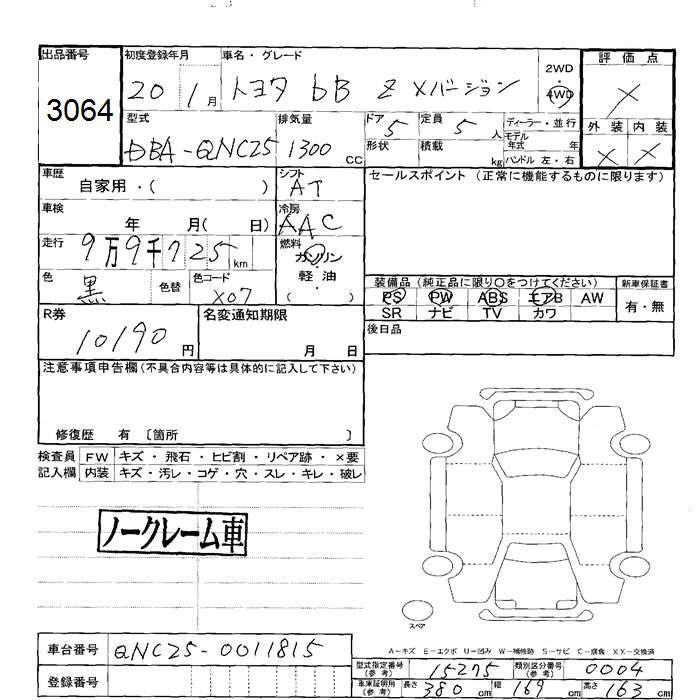 出品番号
3064
初度登録年月
20 1月
車名・グレード
トヨタ bB Z Xバージョン
2WD
4WD
評価点
X
外装 内装
X X
型式
DBA-QNC25
排気量
1300 CC
ドア 5
定員 5 人
形状
積載 kg
ディーラー・並行
モデル年式 年
ハンドル 左・右
車歴
自家用・( )
シフト
AT
セールスポイント (正常に機能するものに限ります)
車検
年 月( 日)
冷房
AAC
走行
9万9千725 km
燃料
ガソリン
軽・油
( )
色
黒
色替
色コード
X07
装備品 (純正品に限り○をつけてください)
PS PW ABS エアB AW
SR ナビ TV カワ
新車保証書
有・無
R券
10190 円
名変通知期限
月 日
後日品
注意事項申告欄 (不具合内容等は具体的に記入して下さい)
修復歴 有 〔箇所 〕
検査員記入欄
FW キズ・飛石・ヒビ割・リペア跡・×要
内装 キズ・汚レ・コゲ・穴・スレ・キレ・破レ
ノークレーム車
スペア
A－キズ E－エクボ U－凹み W－補修跡 S－サビ C－腐食 XX－交換済
車台番号
QNC25-0011815
登録番号
型式指定番号(参考) 15275
類別区分番号(参考) 0004
車庫証明用(参考) 長さ 380 cm 幅 169 cm 高さ 163 cm